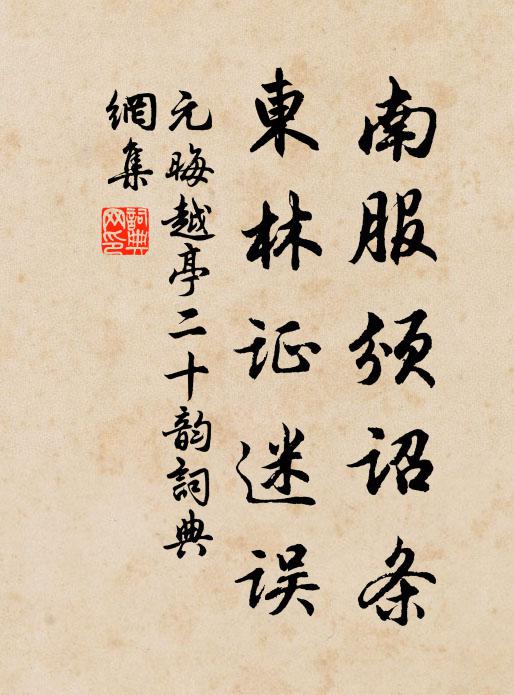 南服颁诏条
東林证迷误
元晦越亭二十韵詞典
網集
詞典
网印